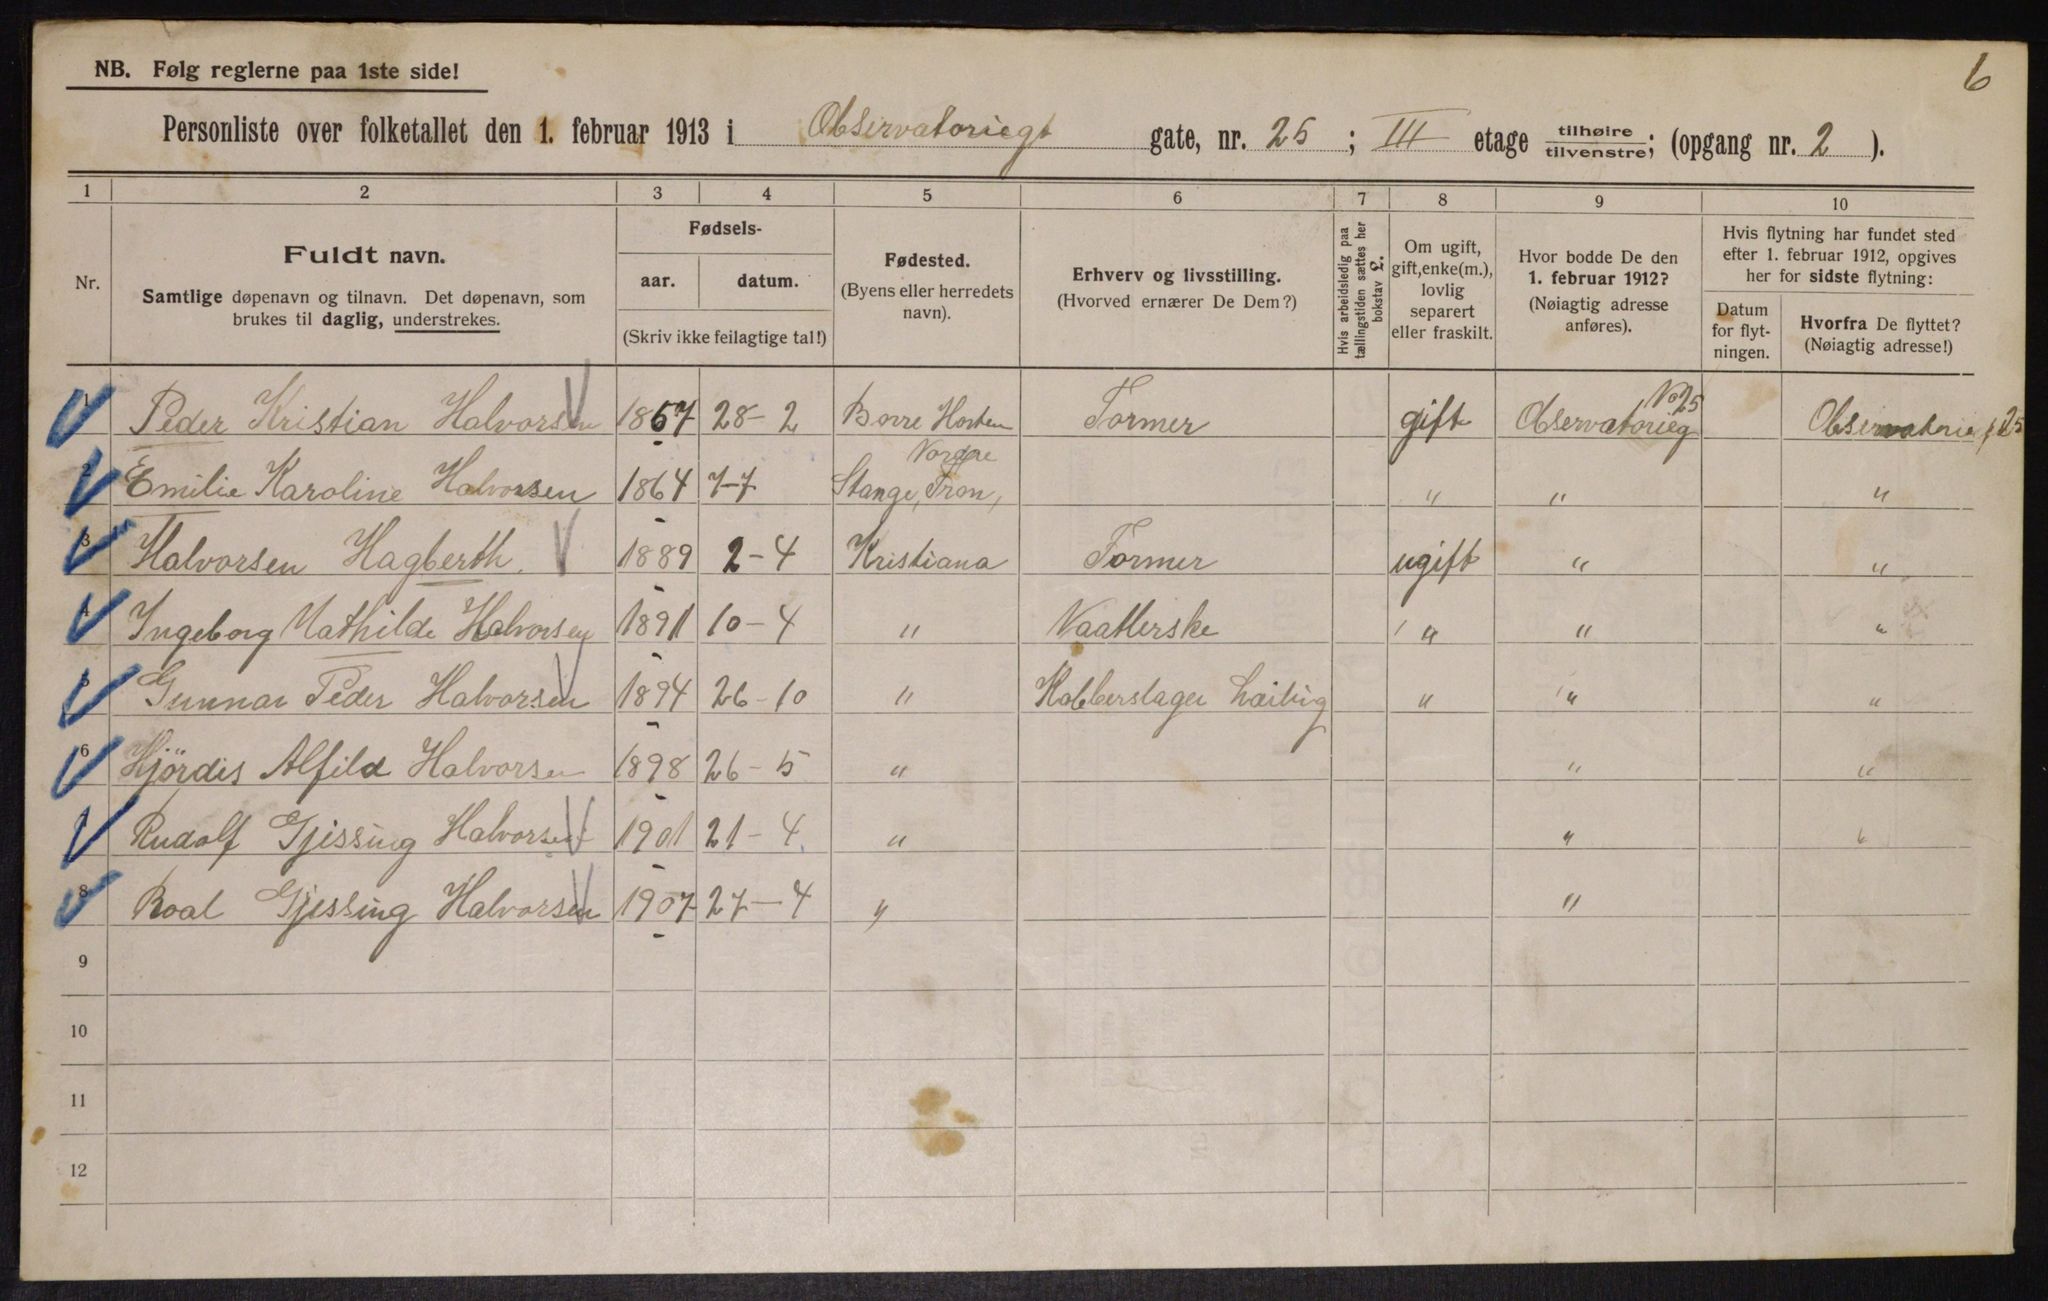 6
NB. Følg reglerne paa 1ste side!
Personliste over folketallet den 1. februar 1913 i Observatoriegt gate, nr. 25 ; III etage tilhøire / tilvenstre ; (opgang nr. 2 ).
1 2 3 4 5 6 7 8 9 10
Nr.
Fuldt navn.
Samtlige døpenavn og tilnavn. Det døpenavn, som
brukes til daglig, understrekes.
Fødsels-
aar. datum.
(Skriv ikke feilagtige tal!)
Fødested.
(Byens eller herredets
navn).
Erhverv og livsstilling.
(Hvorved ernærer De Dem?)
Hvis arbeidsledig paa
tællingstiden sættes her
bokstav L.
Om ugift,
gift, enke(m.),
lovlig
separert
eller fraskilt.
Hvor bodde De den
1. februar 1912?
(Nøiagtig adresse
anføres).
Hvis flytning har fundet sted
efter 1. februar 1912, opgives
her for sidste flytning:
Datum
for flyt-
ningen.
Hvorfra De flyttet?
(Nøiagtig adresse!)
1 Peder Kristian Halvorsen 1867 28-2 Borre Horten Former gift Observatorieg No 25 Observatorieg 25
2 Emilie Karoline Halvorsen 1864 7-7 Stange, Nordre " " "
3 Halvorsen Hagberth. 1889 2-4 Kristiana Former ugift " "
4 Ingeborg Mathilde Halvorsen 1891 10-4 " " " "
5 Gunnar Peder Halvorsen 1894 26-10 " Kobberslager " " "
6 Hjördis Alfild Halvorsen 1898 26-5 " " "
7 Rudolf Gjissing Halvorsen 1901 21-4 " " "
8 Roal Gjessing Halvorsen 1907 27-4 " "
9
10
11
12